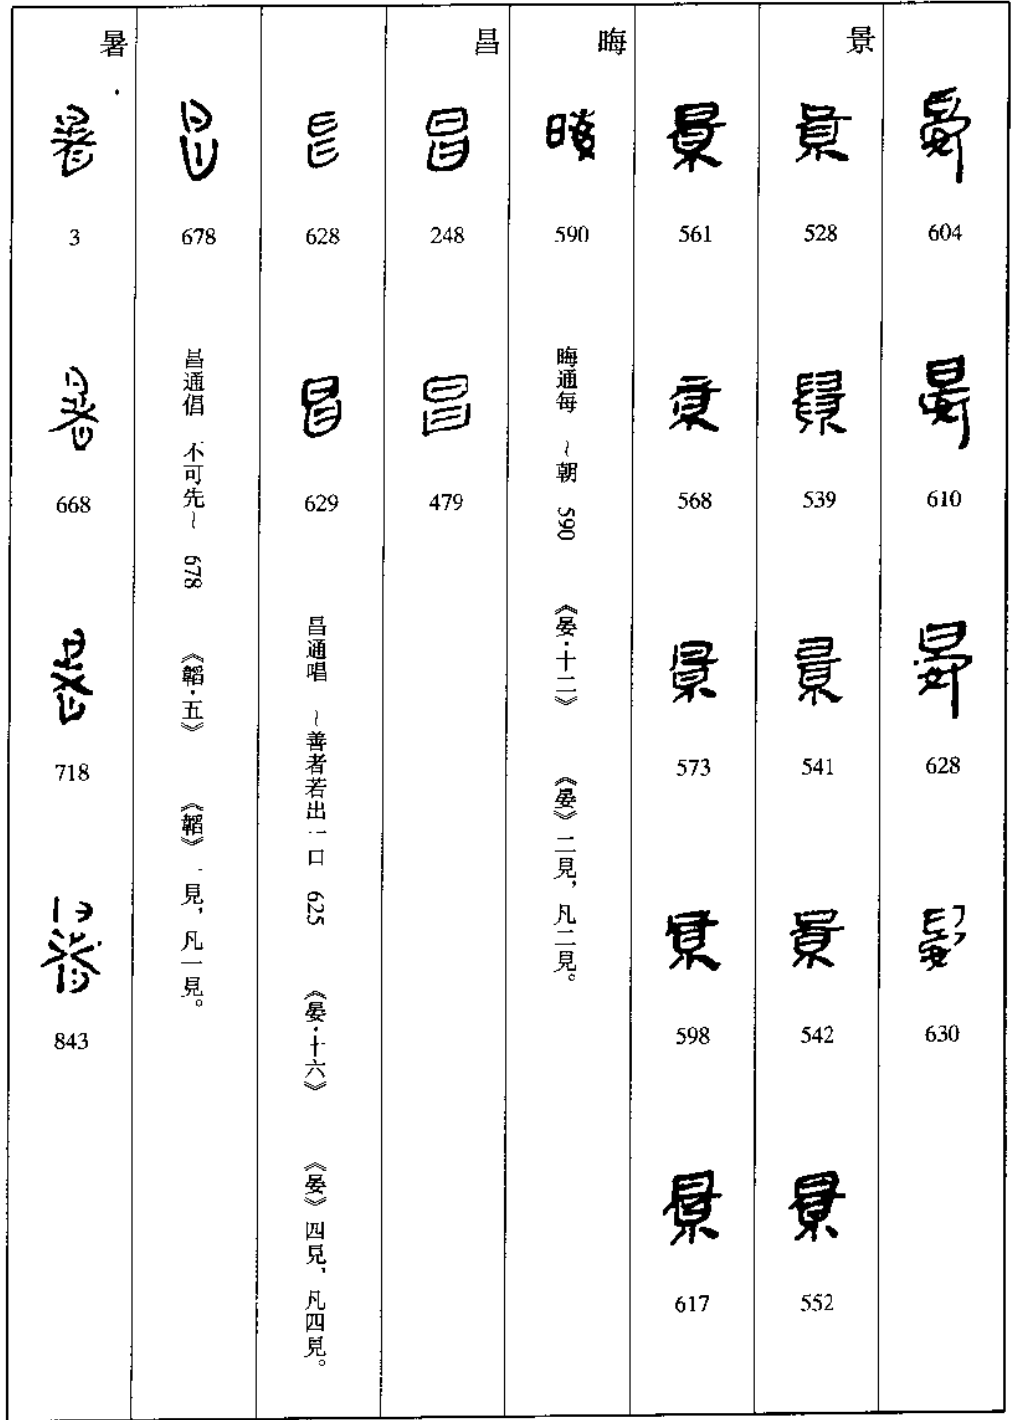 604
610
628
630
景
528
539
541
542
552
561
568
573
598
617
晦
590
晦通每 ～朝 590 《晏·十二》 《晏》二見，凡二見。
昌
248
479
628
629
昌通唱 ～善者若出一口 625 《晏·十六》 《晏》四見，凡四見。
678
昌通倡 不可先～ 678 《韜·五》 《韜》一見，凡一見。
暑
3
668
718
843